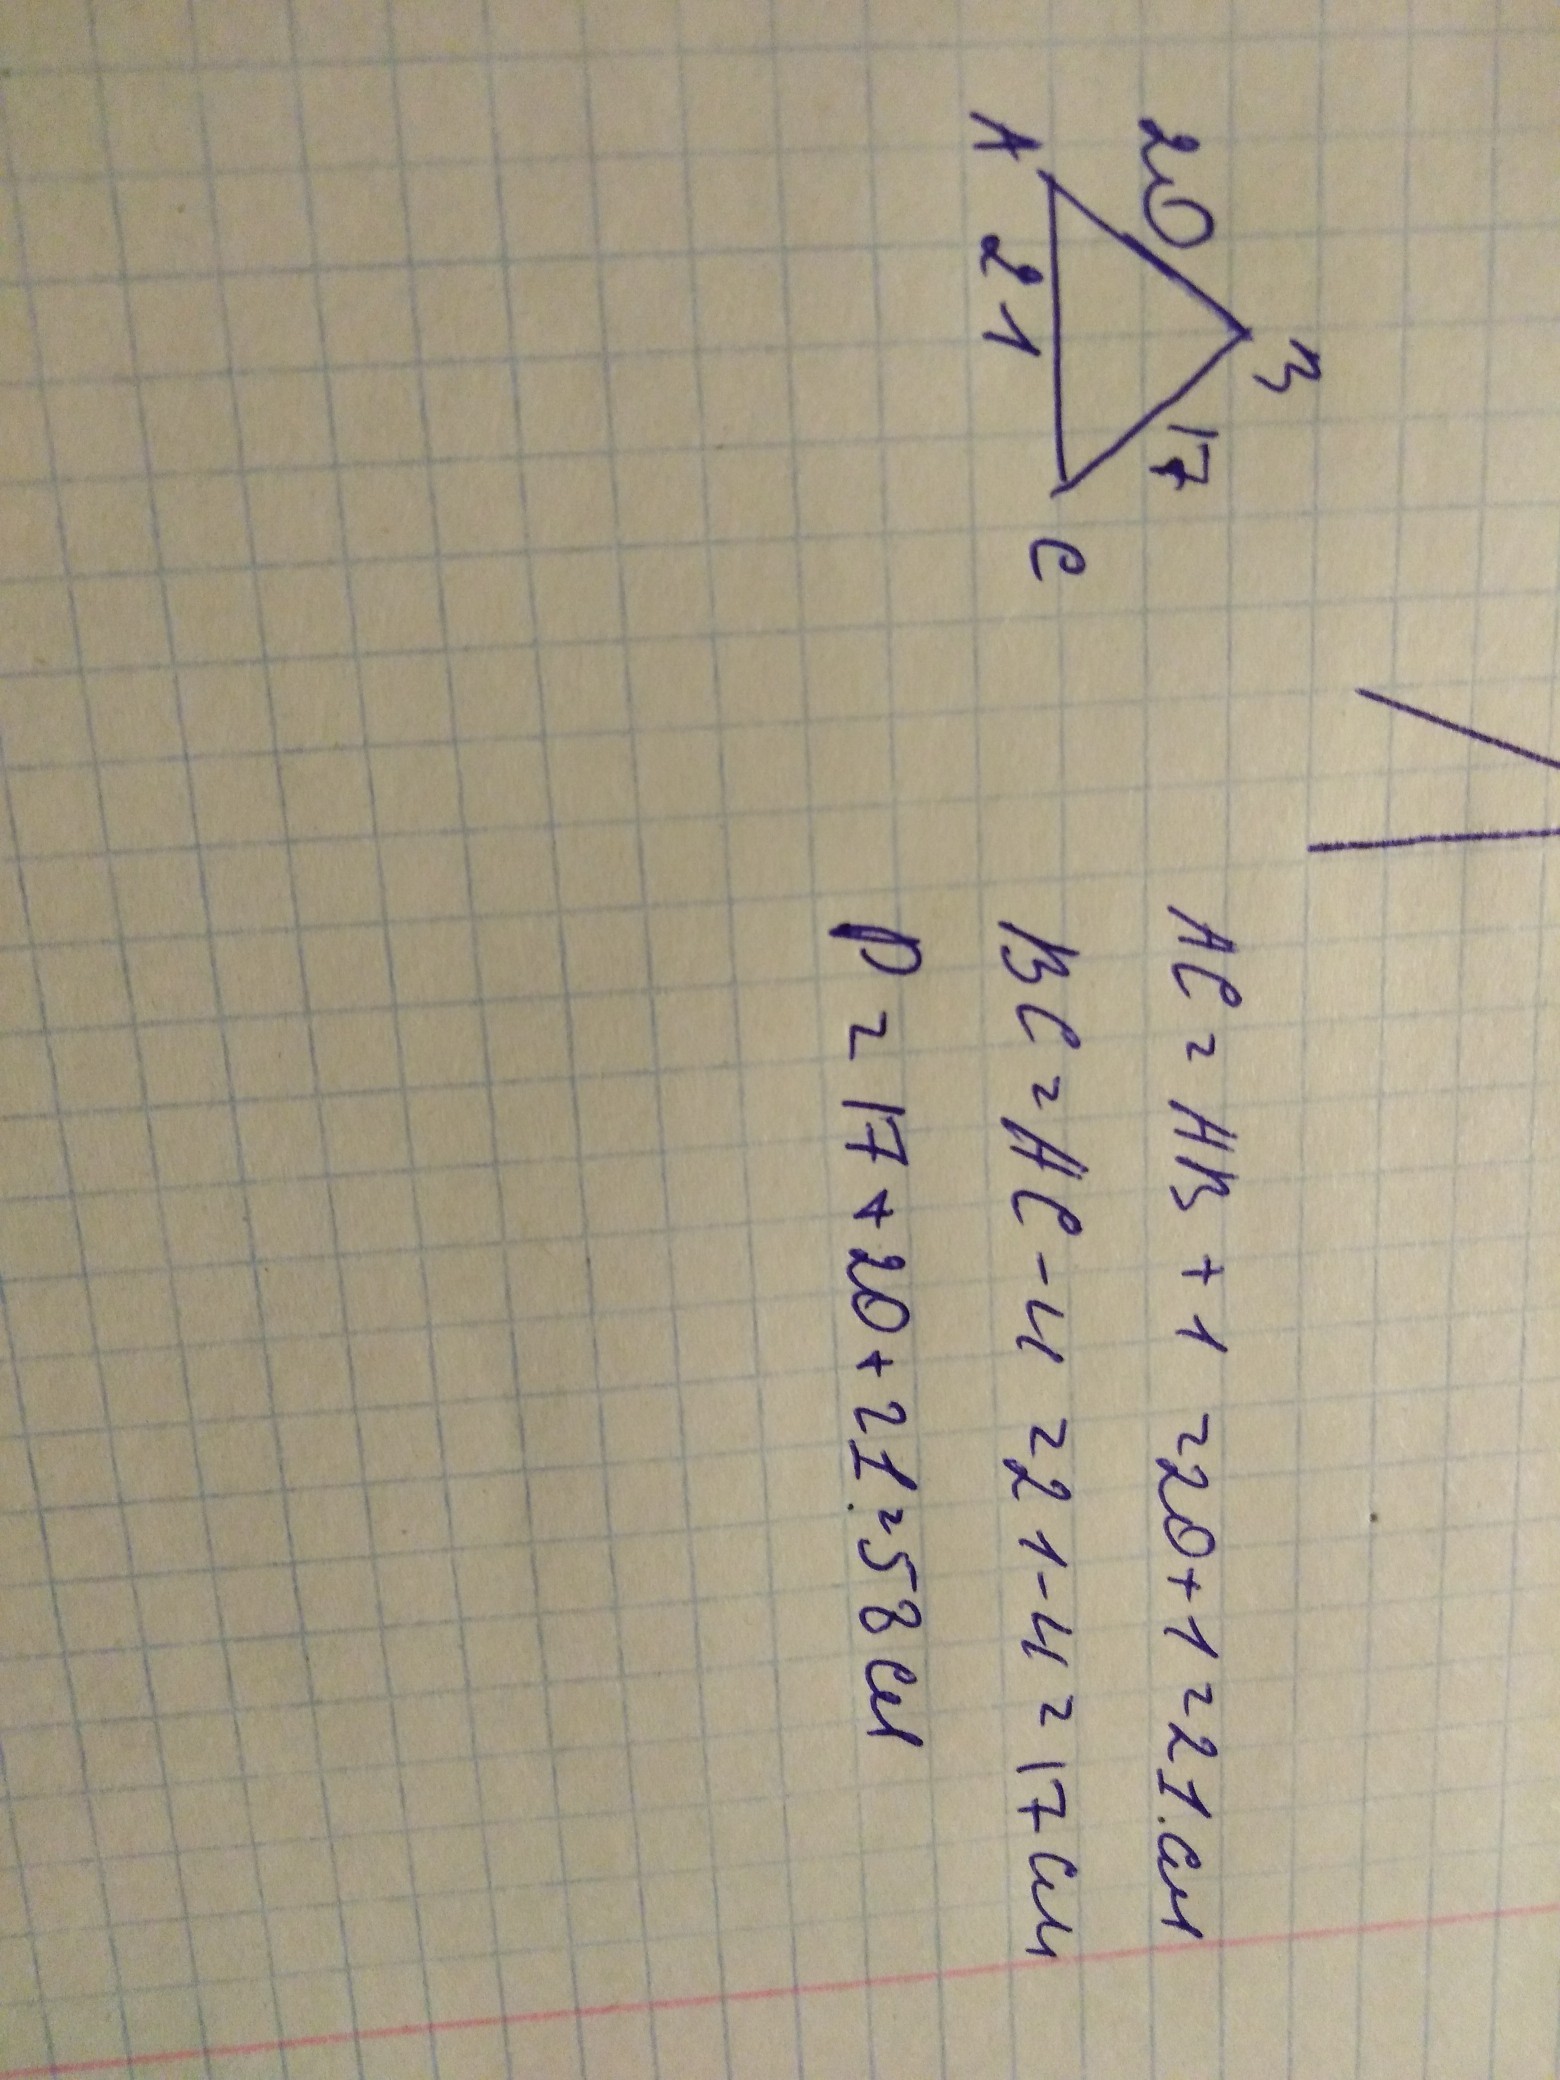 B
20
17
A
21
C
AC = AB + 1 = 20 + 1 = 21 см
BC = AC - 4 = 21 - 4 = 17 см
P = 17 + 20 + 21 = 58 см